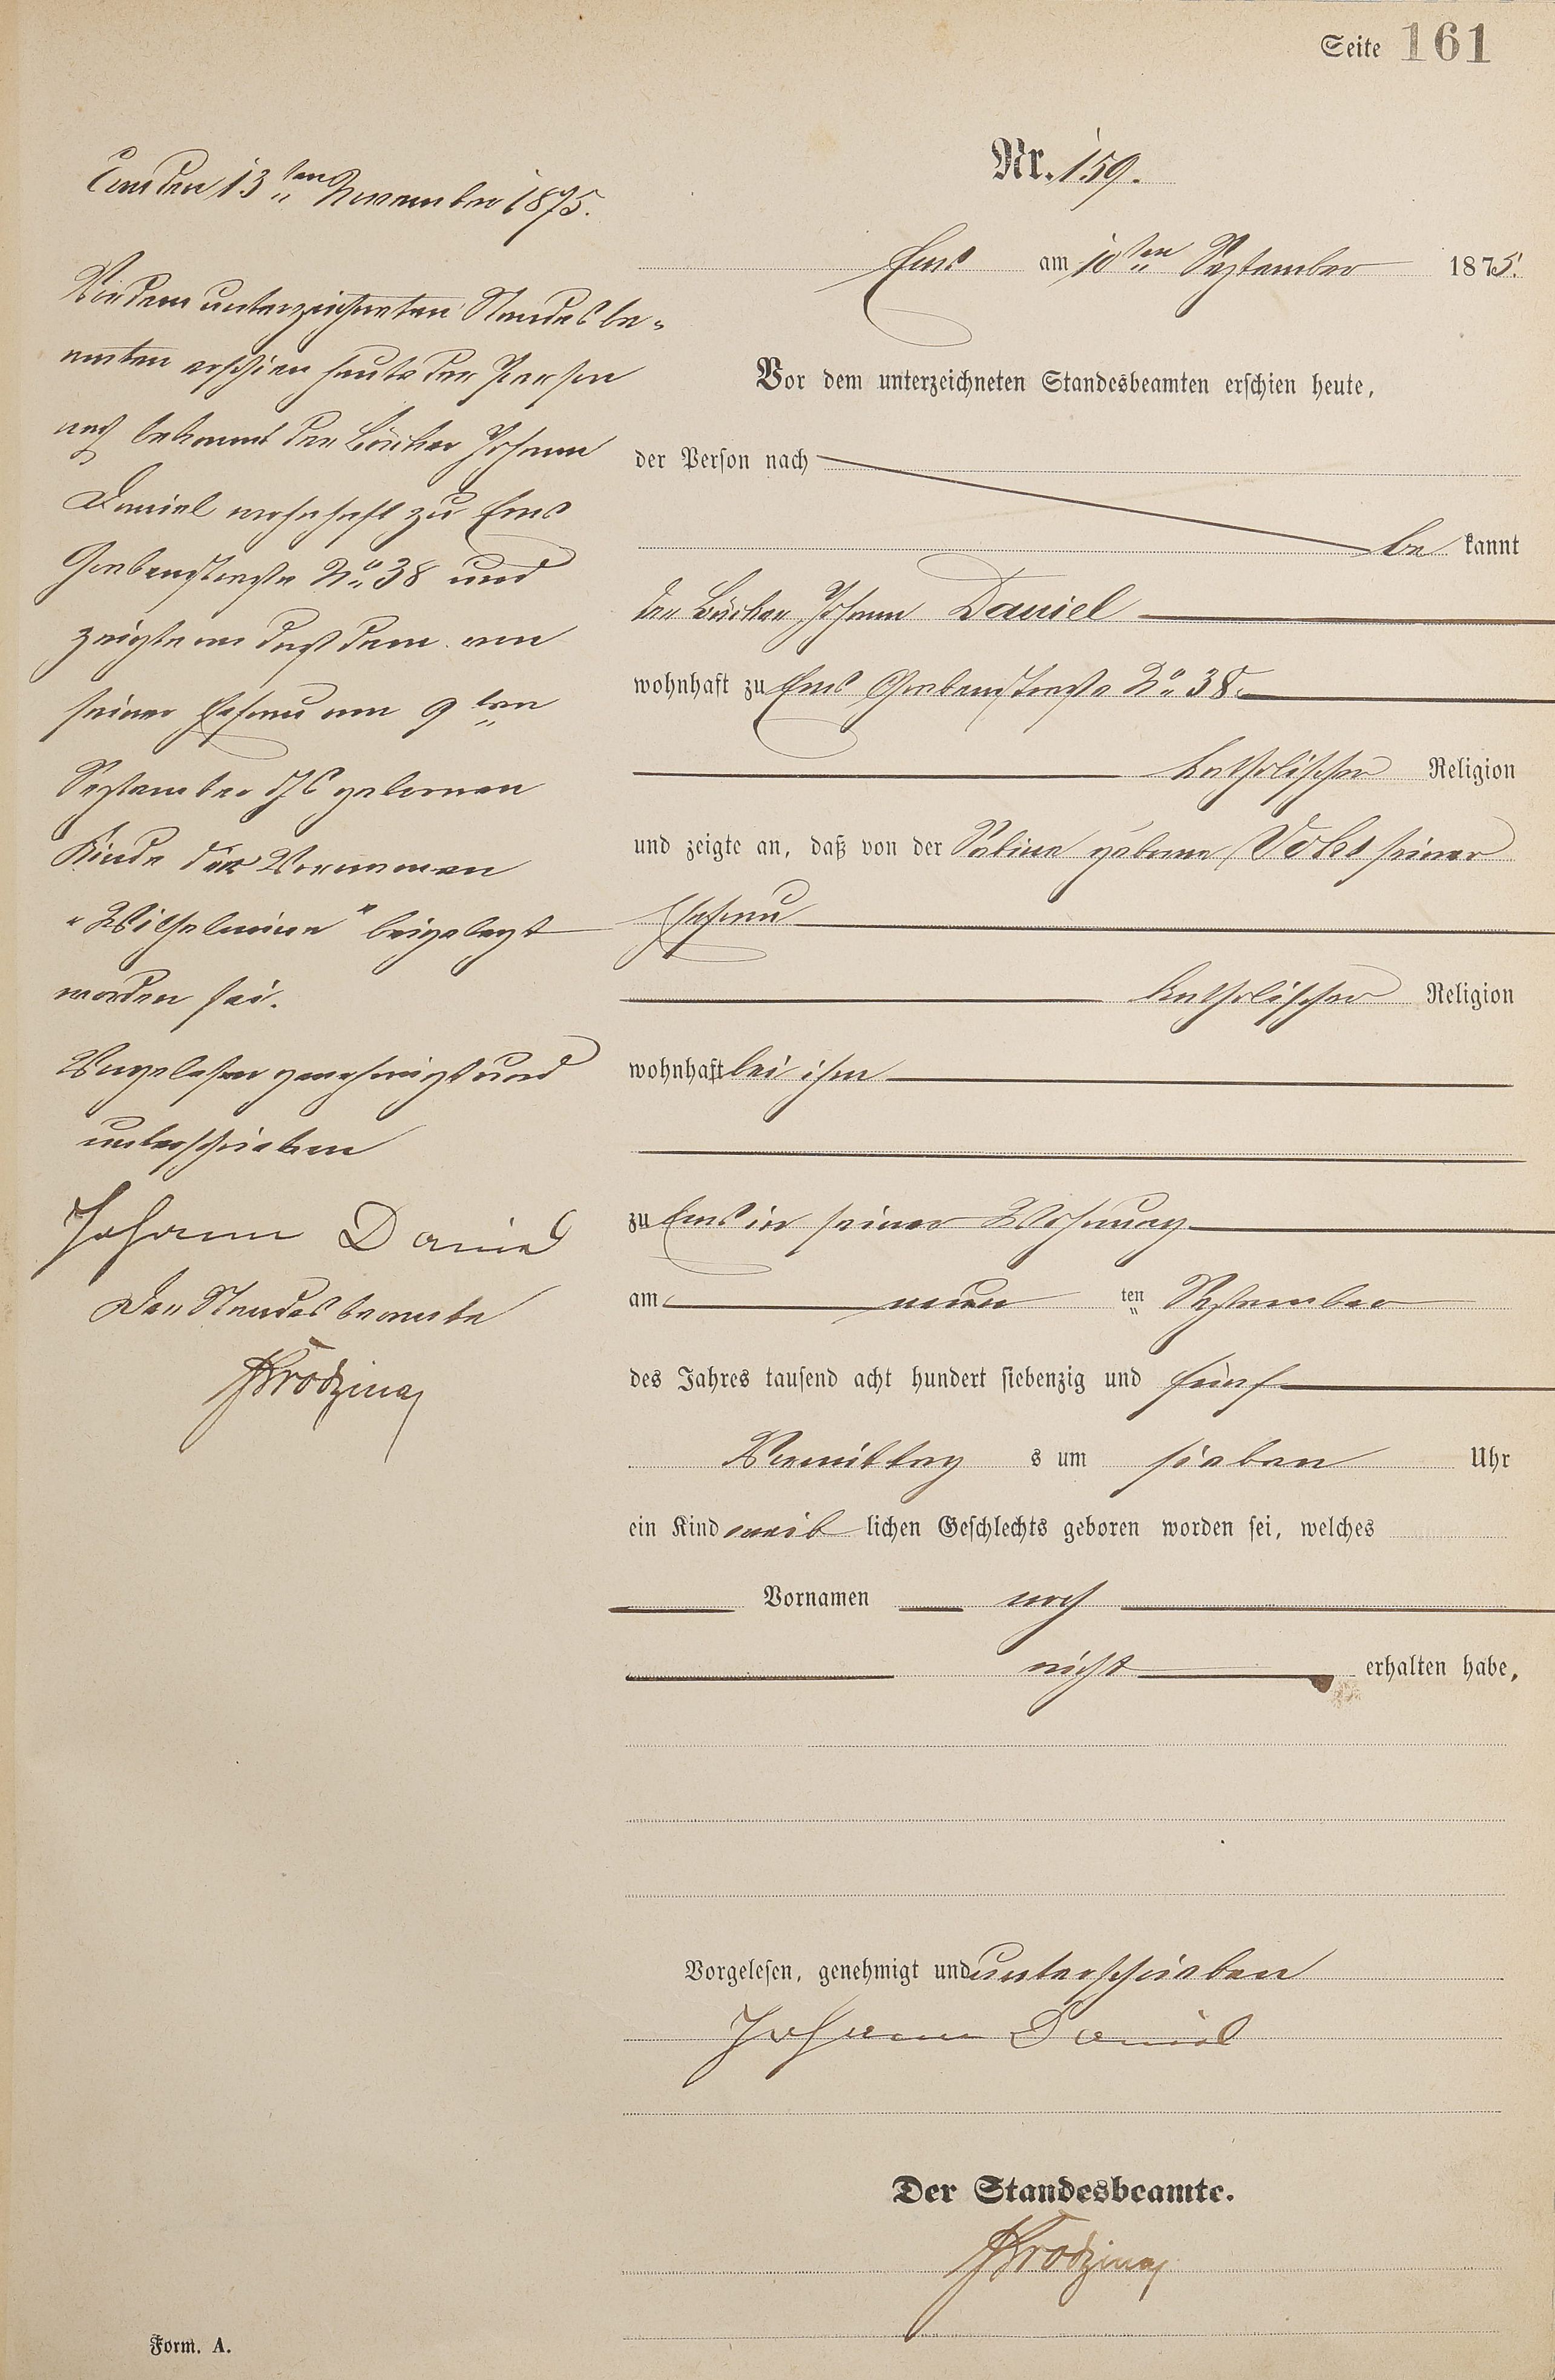 Seite 161
Nr. 159.
Ems am 10ten September 1875.
Vor dem unterzeichneten Standesbeamten erschien heute,
der Person nach
be kannt
der Bäcker Johann Daniel
wohnhaft zu Ems Grabenstraße No. 38.
katholischer Religion
und zeigte an, daß von der Sabine geborne Vohs seiner
Ehefrau
katholischer Religion
wohnhaft bei ihm
zu Ems in seiner Wohnung
am neun ten September
des Jahres tausend acht hundert siebenzig und fünf
Vormittag s um sieben Uhr
ein Kind weib lichen Geschlechts geboren worden sei, welches
Vornamen noch
nicht erhalten habe,
Vorgelesen, genehmigt und unterschrieben
Johann Daniel
Der Standesbeamte.
Form. A.
Ems den 13ten November 1875.
Vor dem unterzeichneten Standesbe-
amten erschien heute der Person
nach bekannt der Bäcker Johann
Daniel wohnhaft zu Ems
Grabenstraße No. 38 und
zeigte an daß dem von
seiner Ehefrau am 9ten
September d Js gebornen
Kinde der Vornamen
"Wilhelmine" beigelegt
worden sei.
Vorgelesen genehmigt und
unterschrieben
Johann Daniel
Der Standesbeamte